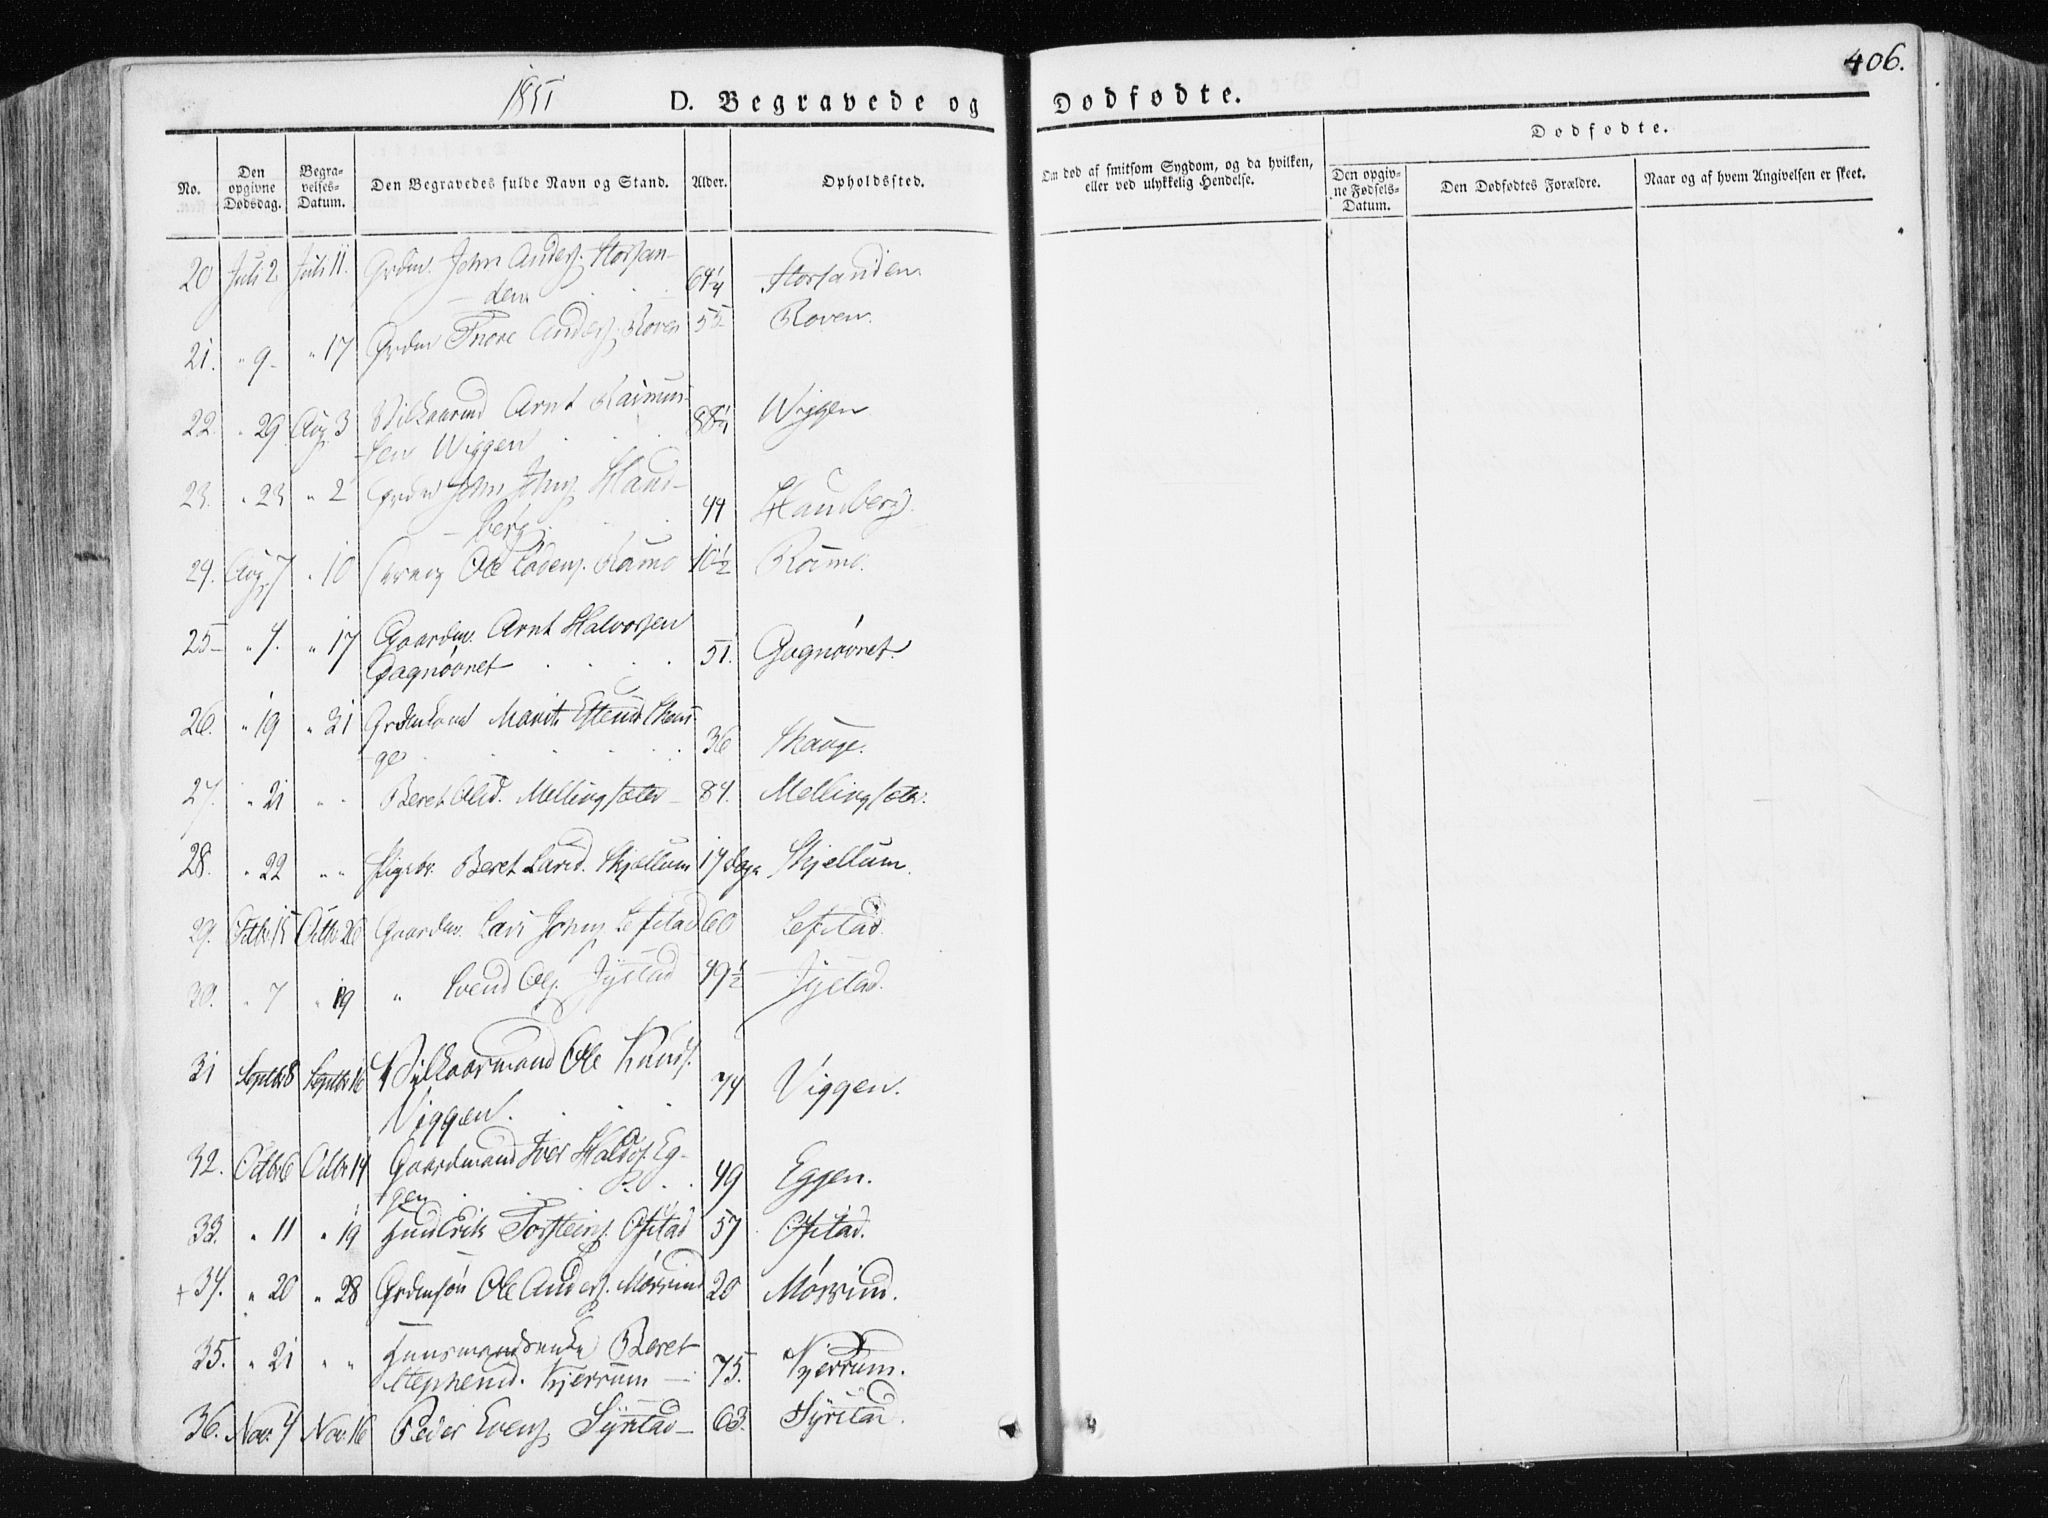 406.
1851
D. Begravede og Dødfødte.
Dødfødte.
No.
Den opgivne Dødsdag.
Begravelses-Datum.
Den Begravedes fulde Navn og Stand.
Alder.
Opholdssted.
Om død af smitsom Sygdom, og da hvilken, eller ved ulykkelig Hendelse.
Den opgivne Fødsels-Datum.
Den Dødfødtes Forældre.
Naar og af hvem Angivelsen er skeet.
20 Juli 2 Juli 11. Grdm. John Anders. Storsan-
den 69¼ Storsanden.
21. " 9 " 17 Grdm Anders. Roven 55 Roven.
22. " 29 Aug 3 Vilkaarmd Arnt Rasmus-
sen Wiggen 88¼ Wiggen
23. " 23 " 2 Grdm John Johns. Haug-
berg 44 Haugberg.
24. Aug 7 " 10 Ole 10½
25 " 4. " 17 Gaardm. Arnt Halvorsen
Gagnåsnet 51. Gagnåsnet.
26. " 19 " 31 Marit Estensd Skau-
ge 36 Skauge.
27. " 21 " " Beret Olsd. Mellingsæter 84. Mellingsætr.
28. " 22 " " Pigebr. Beret Larsd. Skjellum 14 dage Skjellum.
29. Octbr 15 Octbr 26 Gaardm. Lars Johns. Lefstad 60 Lefstad.
30. " 7 " 19 " Svend Ols. 49½
31 Septbr 8 Septbr 16 Vilkaarmand Ole Knuds.
Viggen. 74 Viggen.
32. Octbr 6 Octbr 14 Gaardmand Iver Haldos. Eg-
gen 49 Eggen.
33. " 11 " 19 Erik Torsteins. Ofstad 57 Ofstad.
+ 34. " 20 " 28 Grdmsøn Ole Anders. Mørrind 20 Mørrind.
35. " 21 " " Huusmandsenke Beret
Stephensd. Kjerrum 75. Kjerrum.
36. Nov. 4 Nov. 16 Peder Evens. Syrstad 63. Syrstad.